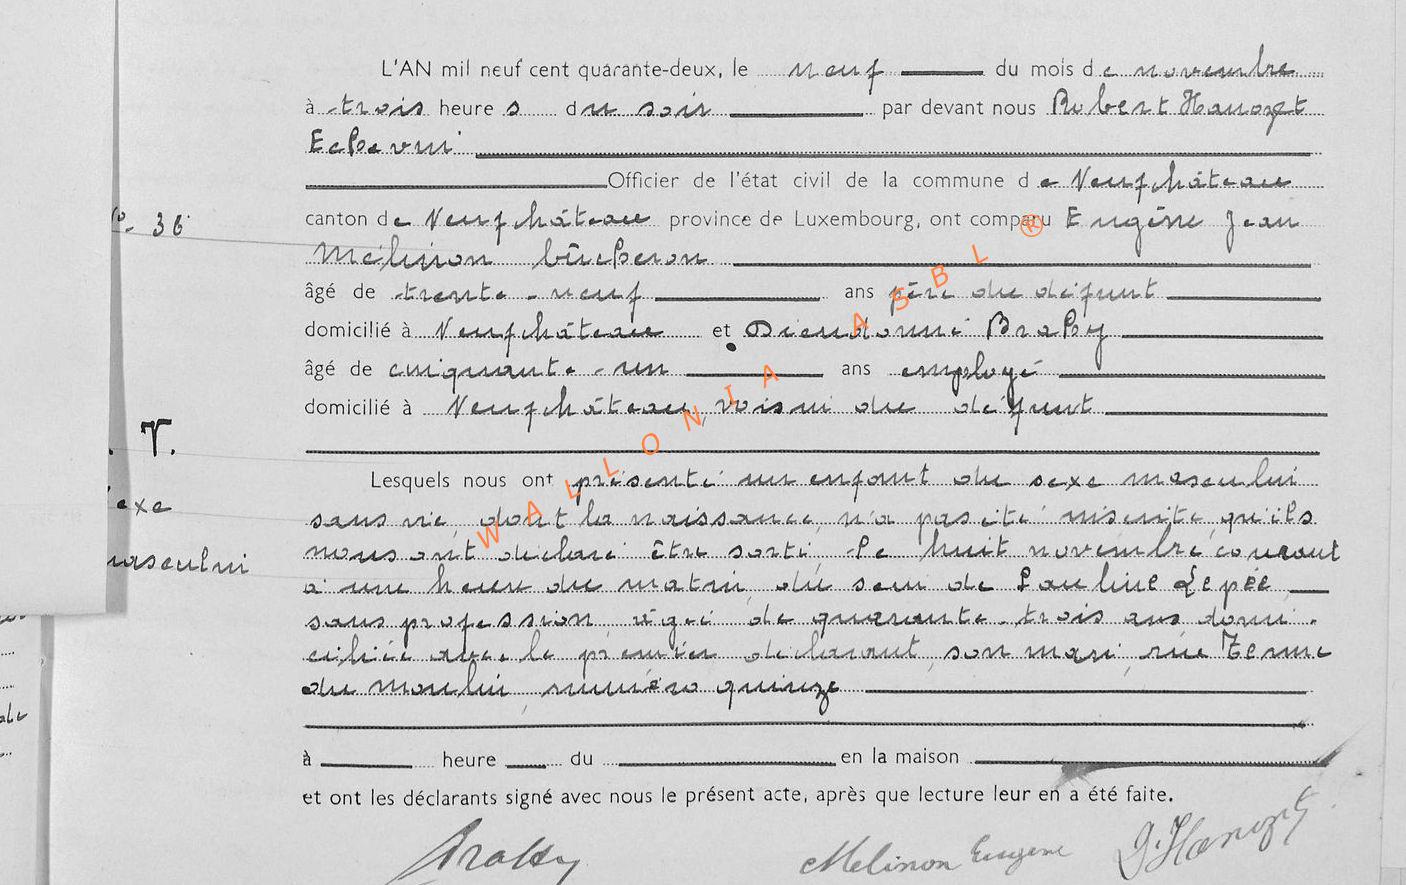 L'AN mil neuf cent quarante-deux, le neuf du mois de novembre
à trois heures du soir par devant nous Robert Hanozet
Echevin
Officier de l'état civil de la commune de Neufchâteau
canton de Neufchâteau province de Luxembourg, ont comparu Eugène Jean
36
Mélinon bûcheron
âgé de trente-neuf ans père du défunt
domicilié à Neufchâteau et Dieudonné Braky
âgé de cinquante-un ans employé
domicilié à Neufchâteau, voisin du défunt
T.
Lesquels nous ont présenté un enfant du sexe masculin
sexe
sans vie, dont la naissance, n'a pas été inscrite, qu'ils
nous ont déclaré être sorti, le huit novembre, courant
masculin
à une heure du matin, du sein de Pauline Lepée,
sans profession, âgée de quarante-trois ans domi-
ciliée avec le premier déclarant, son mari, rue Tenue
du moulin, numéro quinze
à heure du en la maison
et ont les déclarants signé avec nous le présent acte, après que lecture leur en a été faite.
Braky Mélinon Eugène Hanozet
WALLONIA ASBL ®